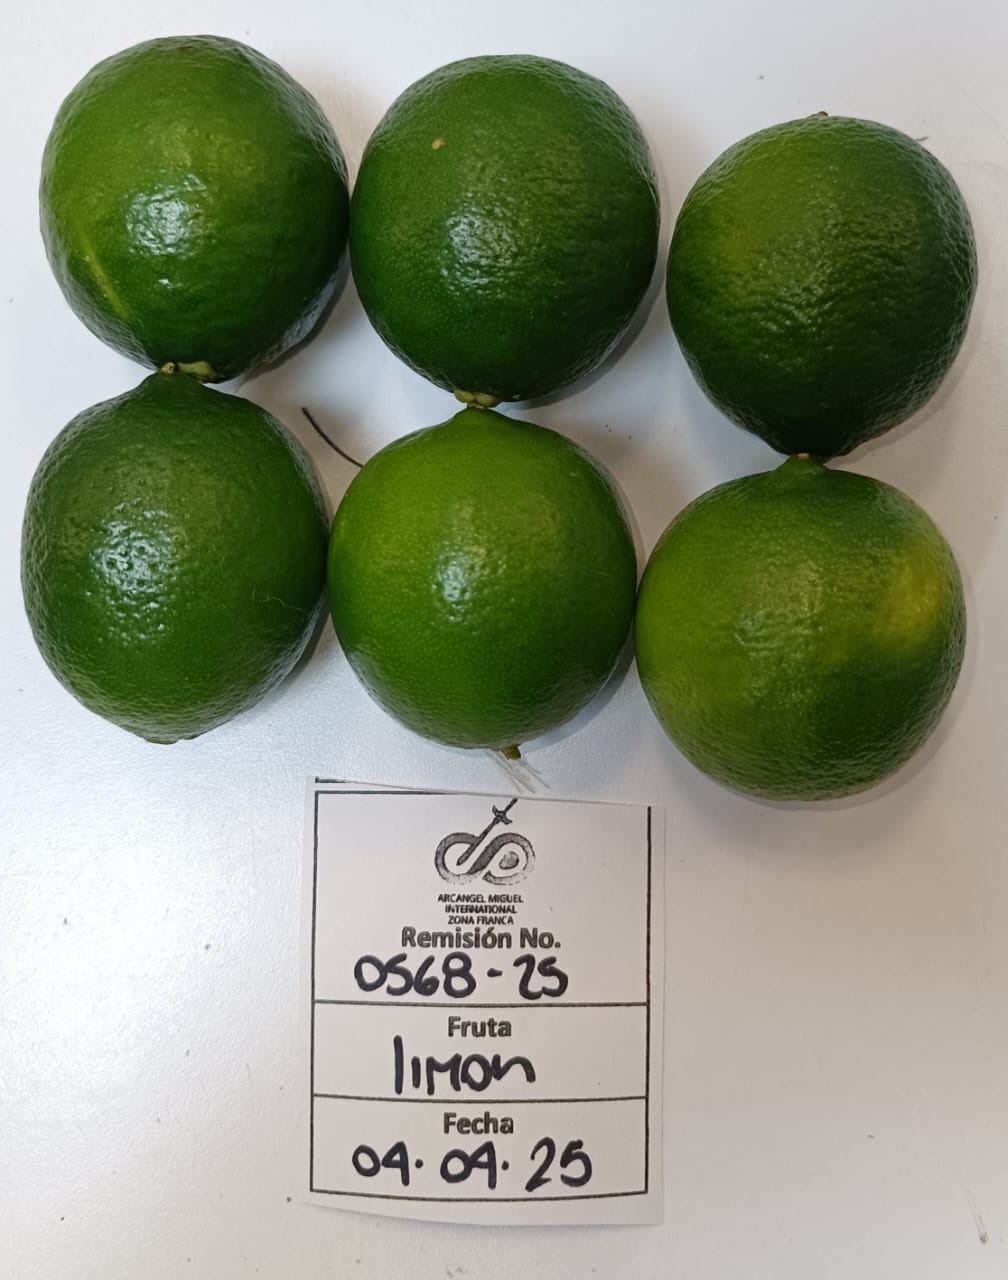 ARCANGEL MIGUEL
INTERNATIONAL
ZONA FRANCA
Remisión No.
0568-25
Fruta
limon
Fecha
04.04.25